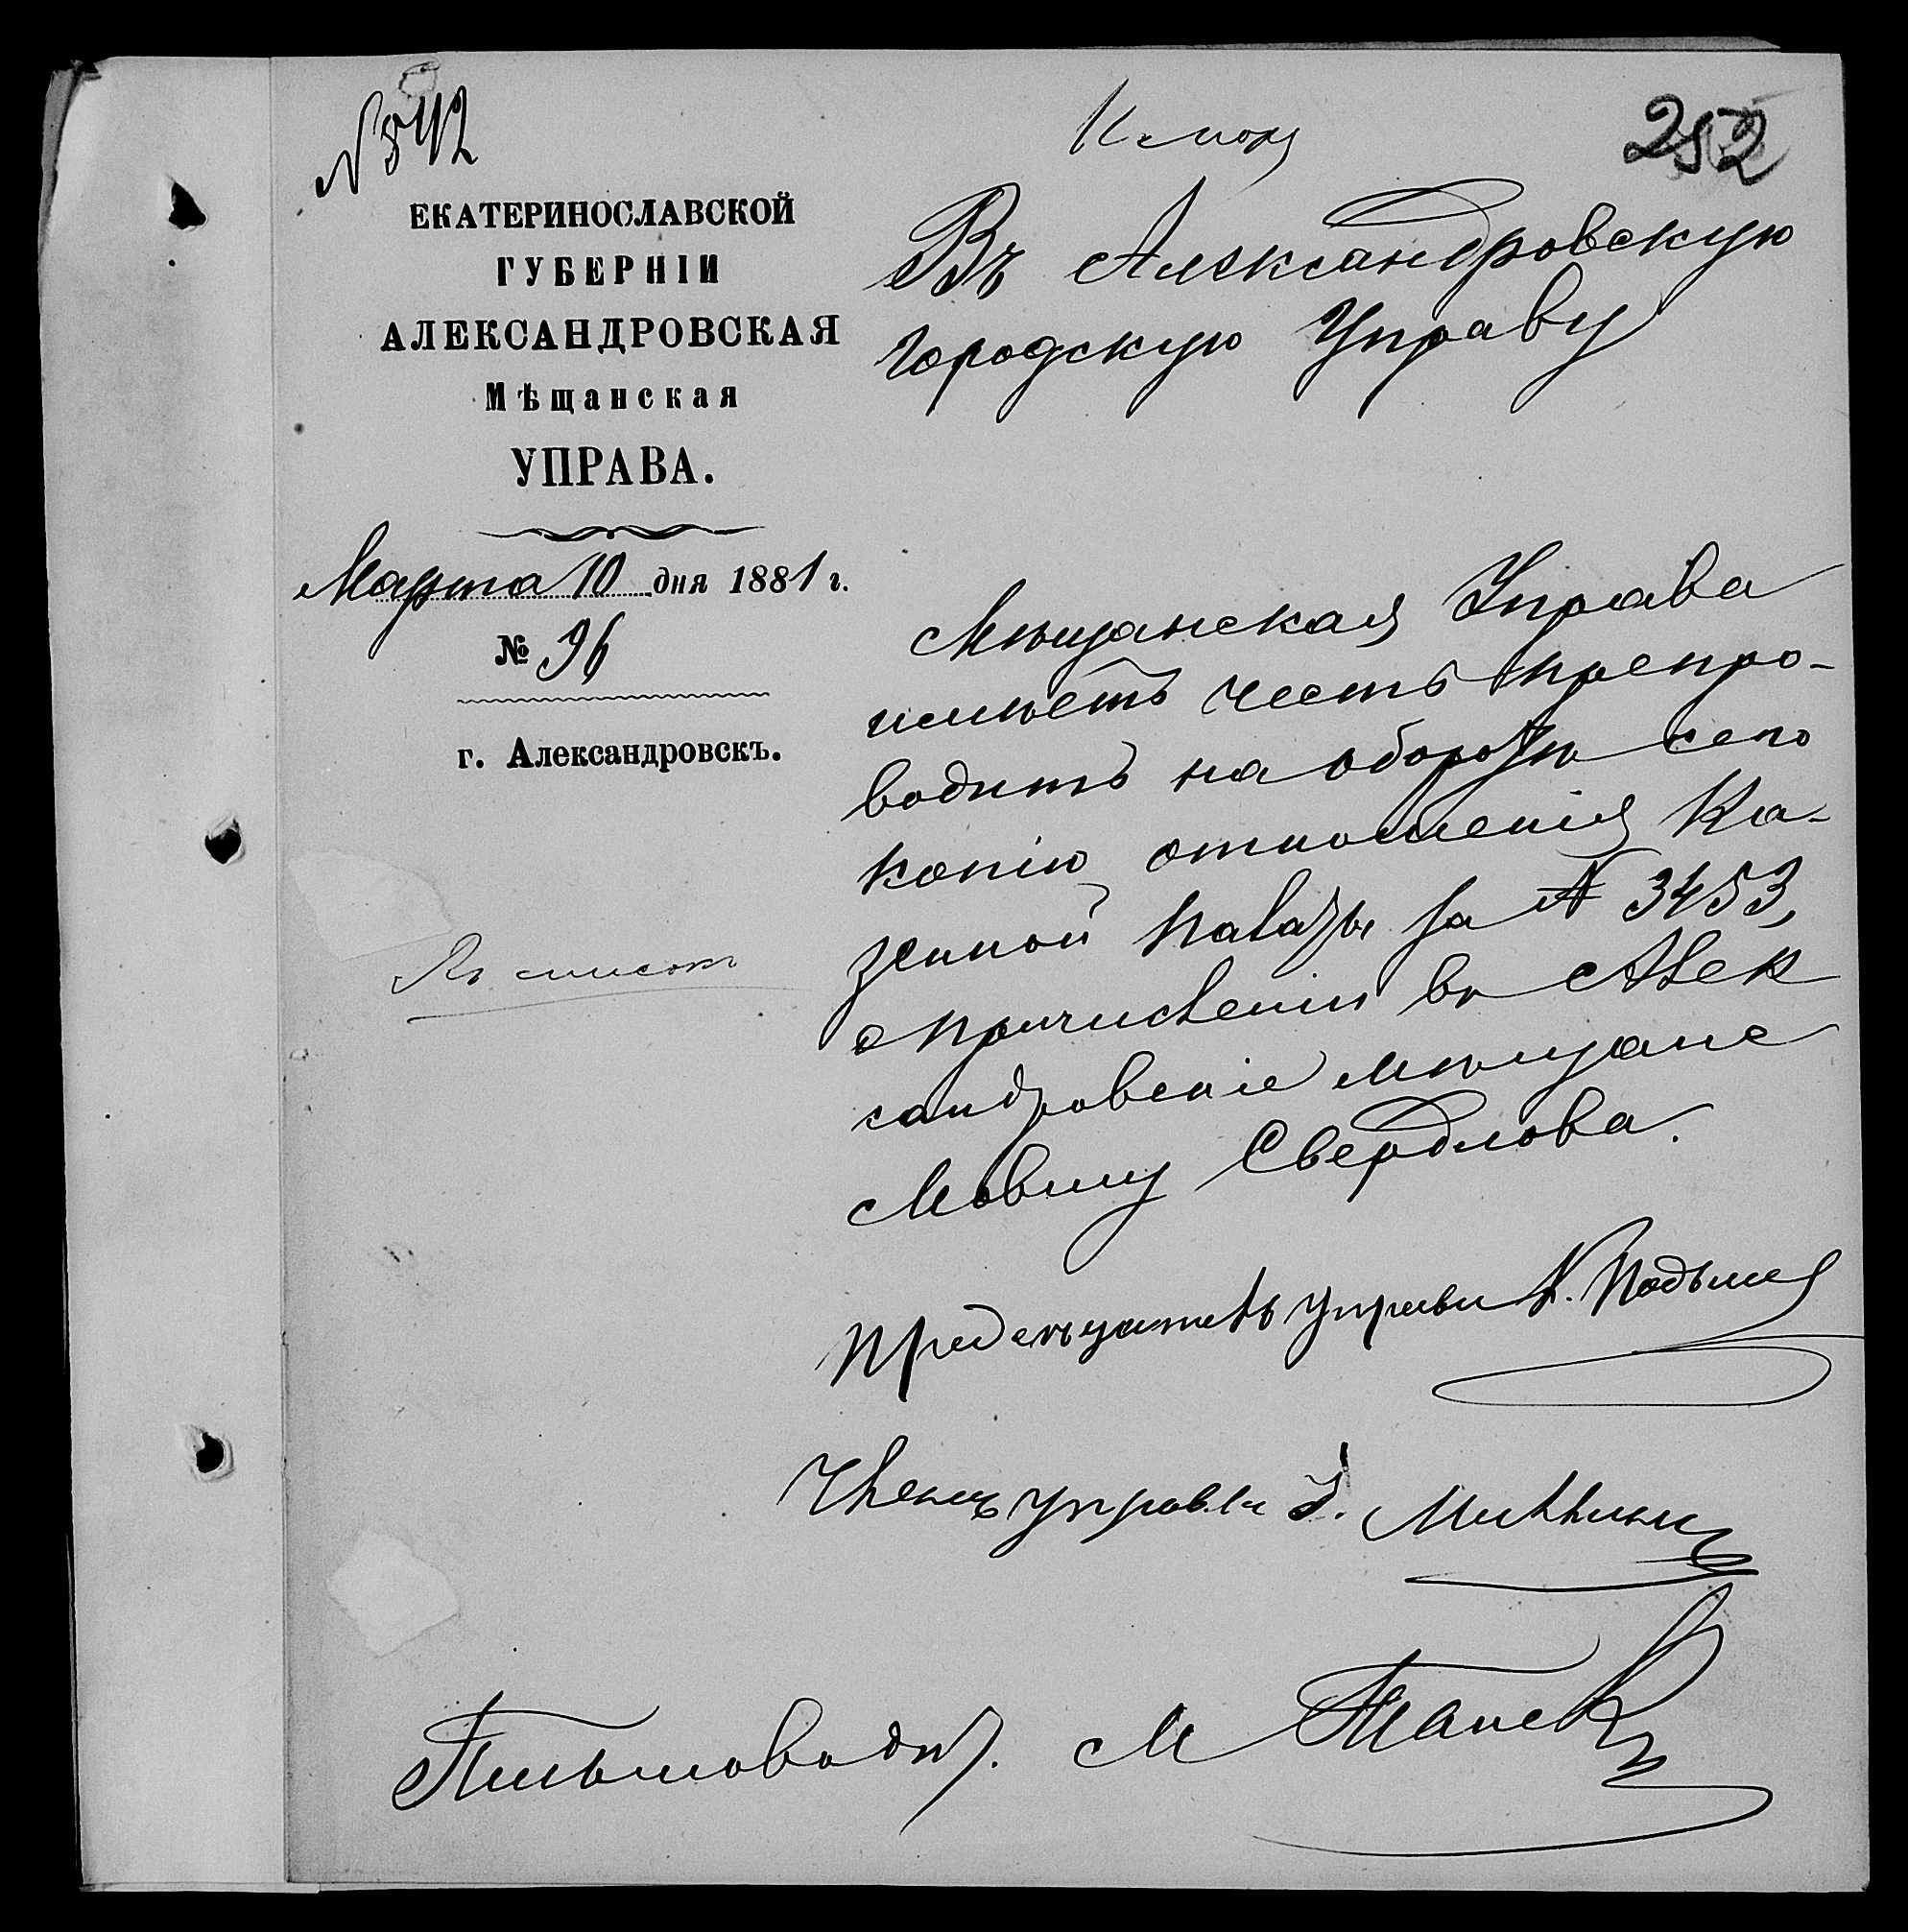 № 542
252
ЕКАТЕРИНОСЛАВСКОЙ
ГУБЕРНІИ
АЛЕКСАНДРОВСКАЯ
Мѣщанская
УПРАВА.
Марта 10 дня 1881 г.
№ 96
г. Александровскъ.
Въ Александровскую
городскую Управу
Мѣщанская Управа
имѣетъ честь препро-
водить на оборотѣ сего
копію отношенія Ка-
зенной палаты за № 3453,
о причисленіи въ Алек
сандровскіе мѣщане
Мовшу Свердлова.
Предсѣдатель Управы
Членъ управы
Письмовод. М